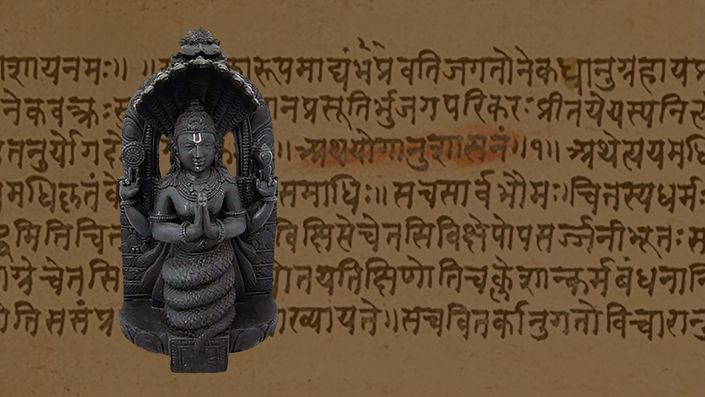 शायनमः॥ ॥ रूपमाद्यं प्रवतिजगतोनेकधानुग्रहायप्र
नेकवक्त्रः नप्रसूतिर्भुजगपरिकरः प्रीतयेयस्यनित्यं
तनुर्योगदो ॥ अथयोगानुशासनं॥१॥ अथेत्ययमधि
समाधिः॥ सचसार्वभौमः चित्तस्यधर्मः
मितिचि विक्षिप्तेचेतसिविक्षेपोपसर्ज्जनीभूतः स
ग्रेचेतसि तयतिक्षिणोतिचक्लेशान्कर्मबंधनानि
तिससंप्र ख्यायते॥ सचवितर्कानुगतोविचारानु